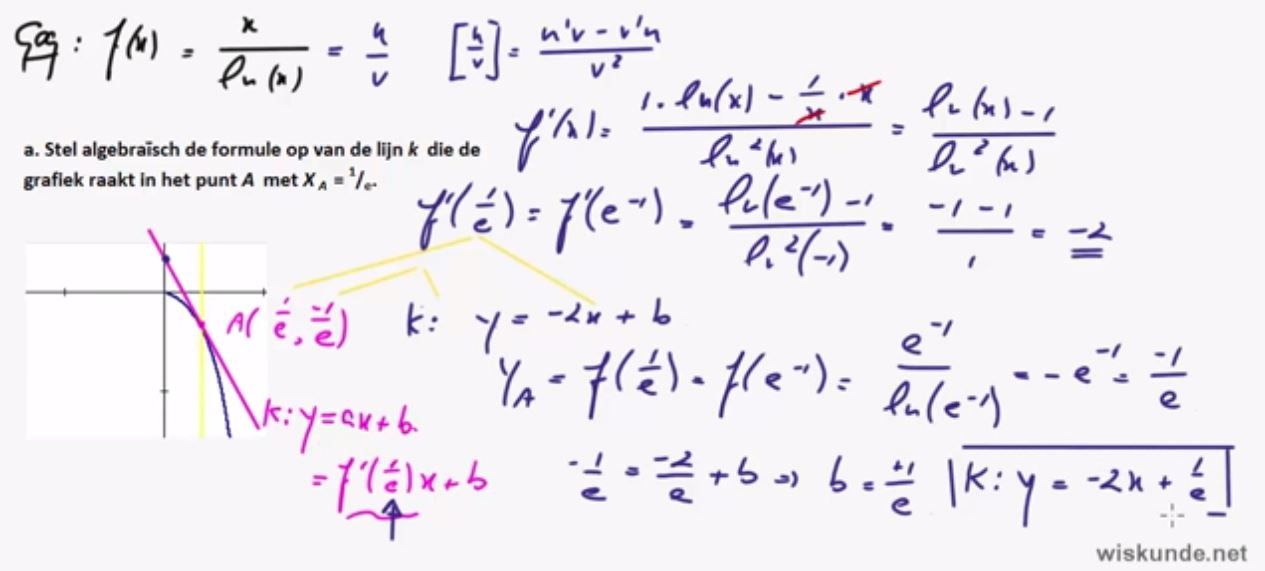 Geg: f(x) = x/ln(x) = u/v [u/v]' = (u'v - v'u)/v²
f'(x) = (1·ln(x) - 1/x · x)/ln²(x) = (ln(x) - 1)/ln²(x)
a. Stel algebraïsch de formule op van de lijn k die de
grafiek raakt in het punt A met X_A = 1/e.
f'(1/e) = f'(e⁻¹) = (ln(e⁻¹) - 1)/ln²(-1) = (-1 - 1)/1 = -2
A(1/e, -1/e)
k: y = -2x + b
y_A = f(1/e) = f(e⁻¹) = e⁻¹/ln(e⁻¹) = -e⁻¹ = -1/e
k: y = ax + b
= f'(1/e)x + b
-1/e = -2/e + b ⇒ b = +1/e
k: y = -2x + 1/e
wiskunde.net